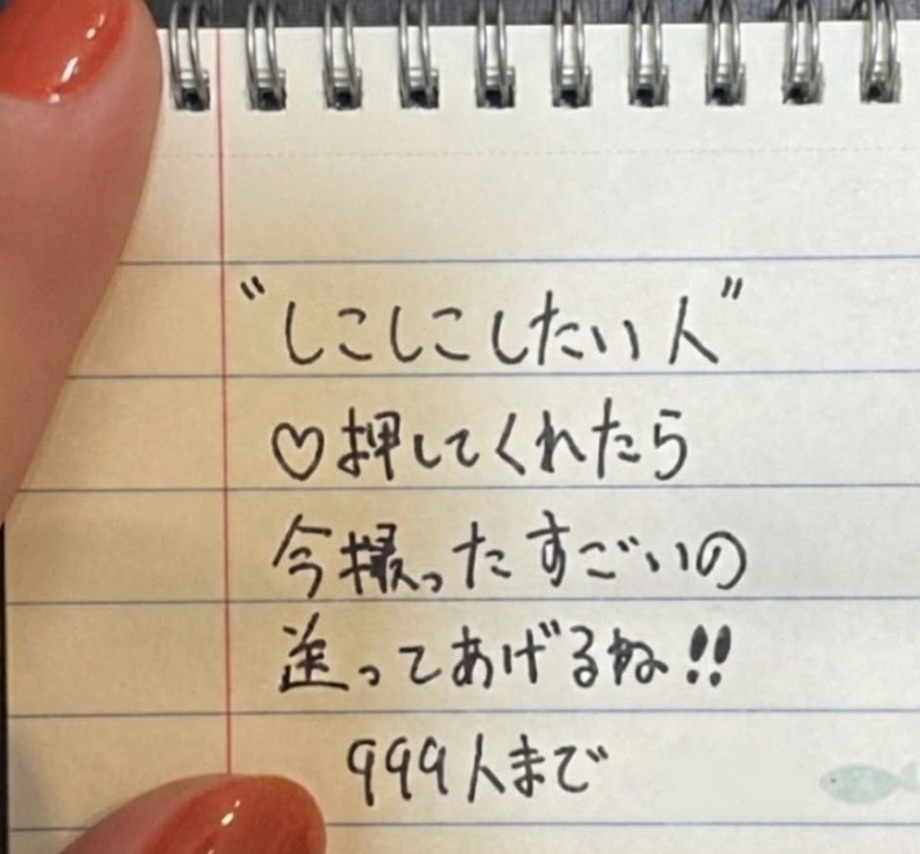 "しこしこしたい人"
♡押してくれたら
今撮ったすごいの
送ってあげるね!!
999人まで